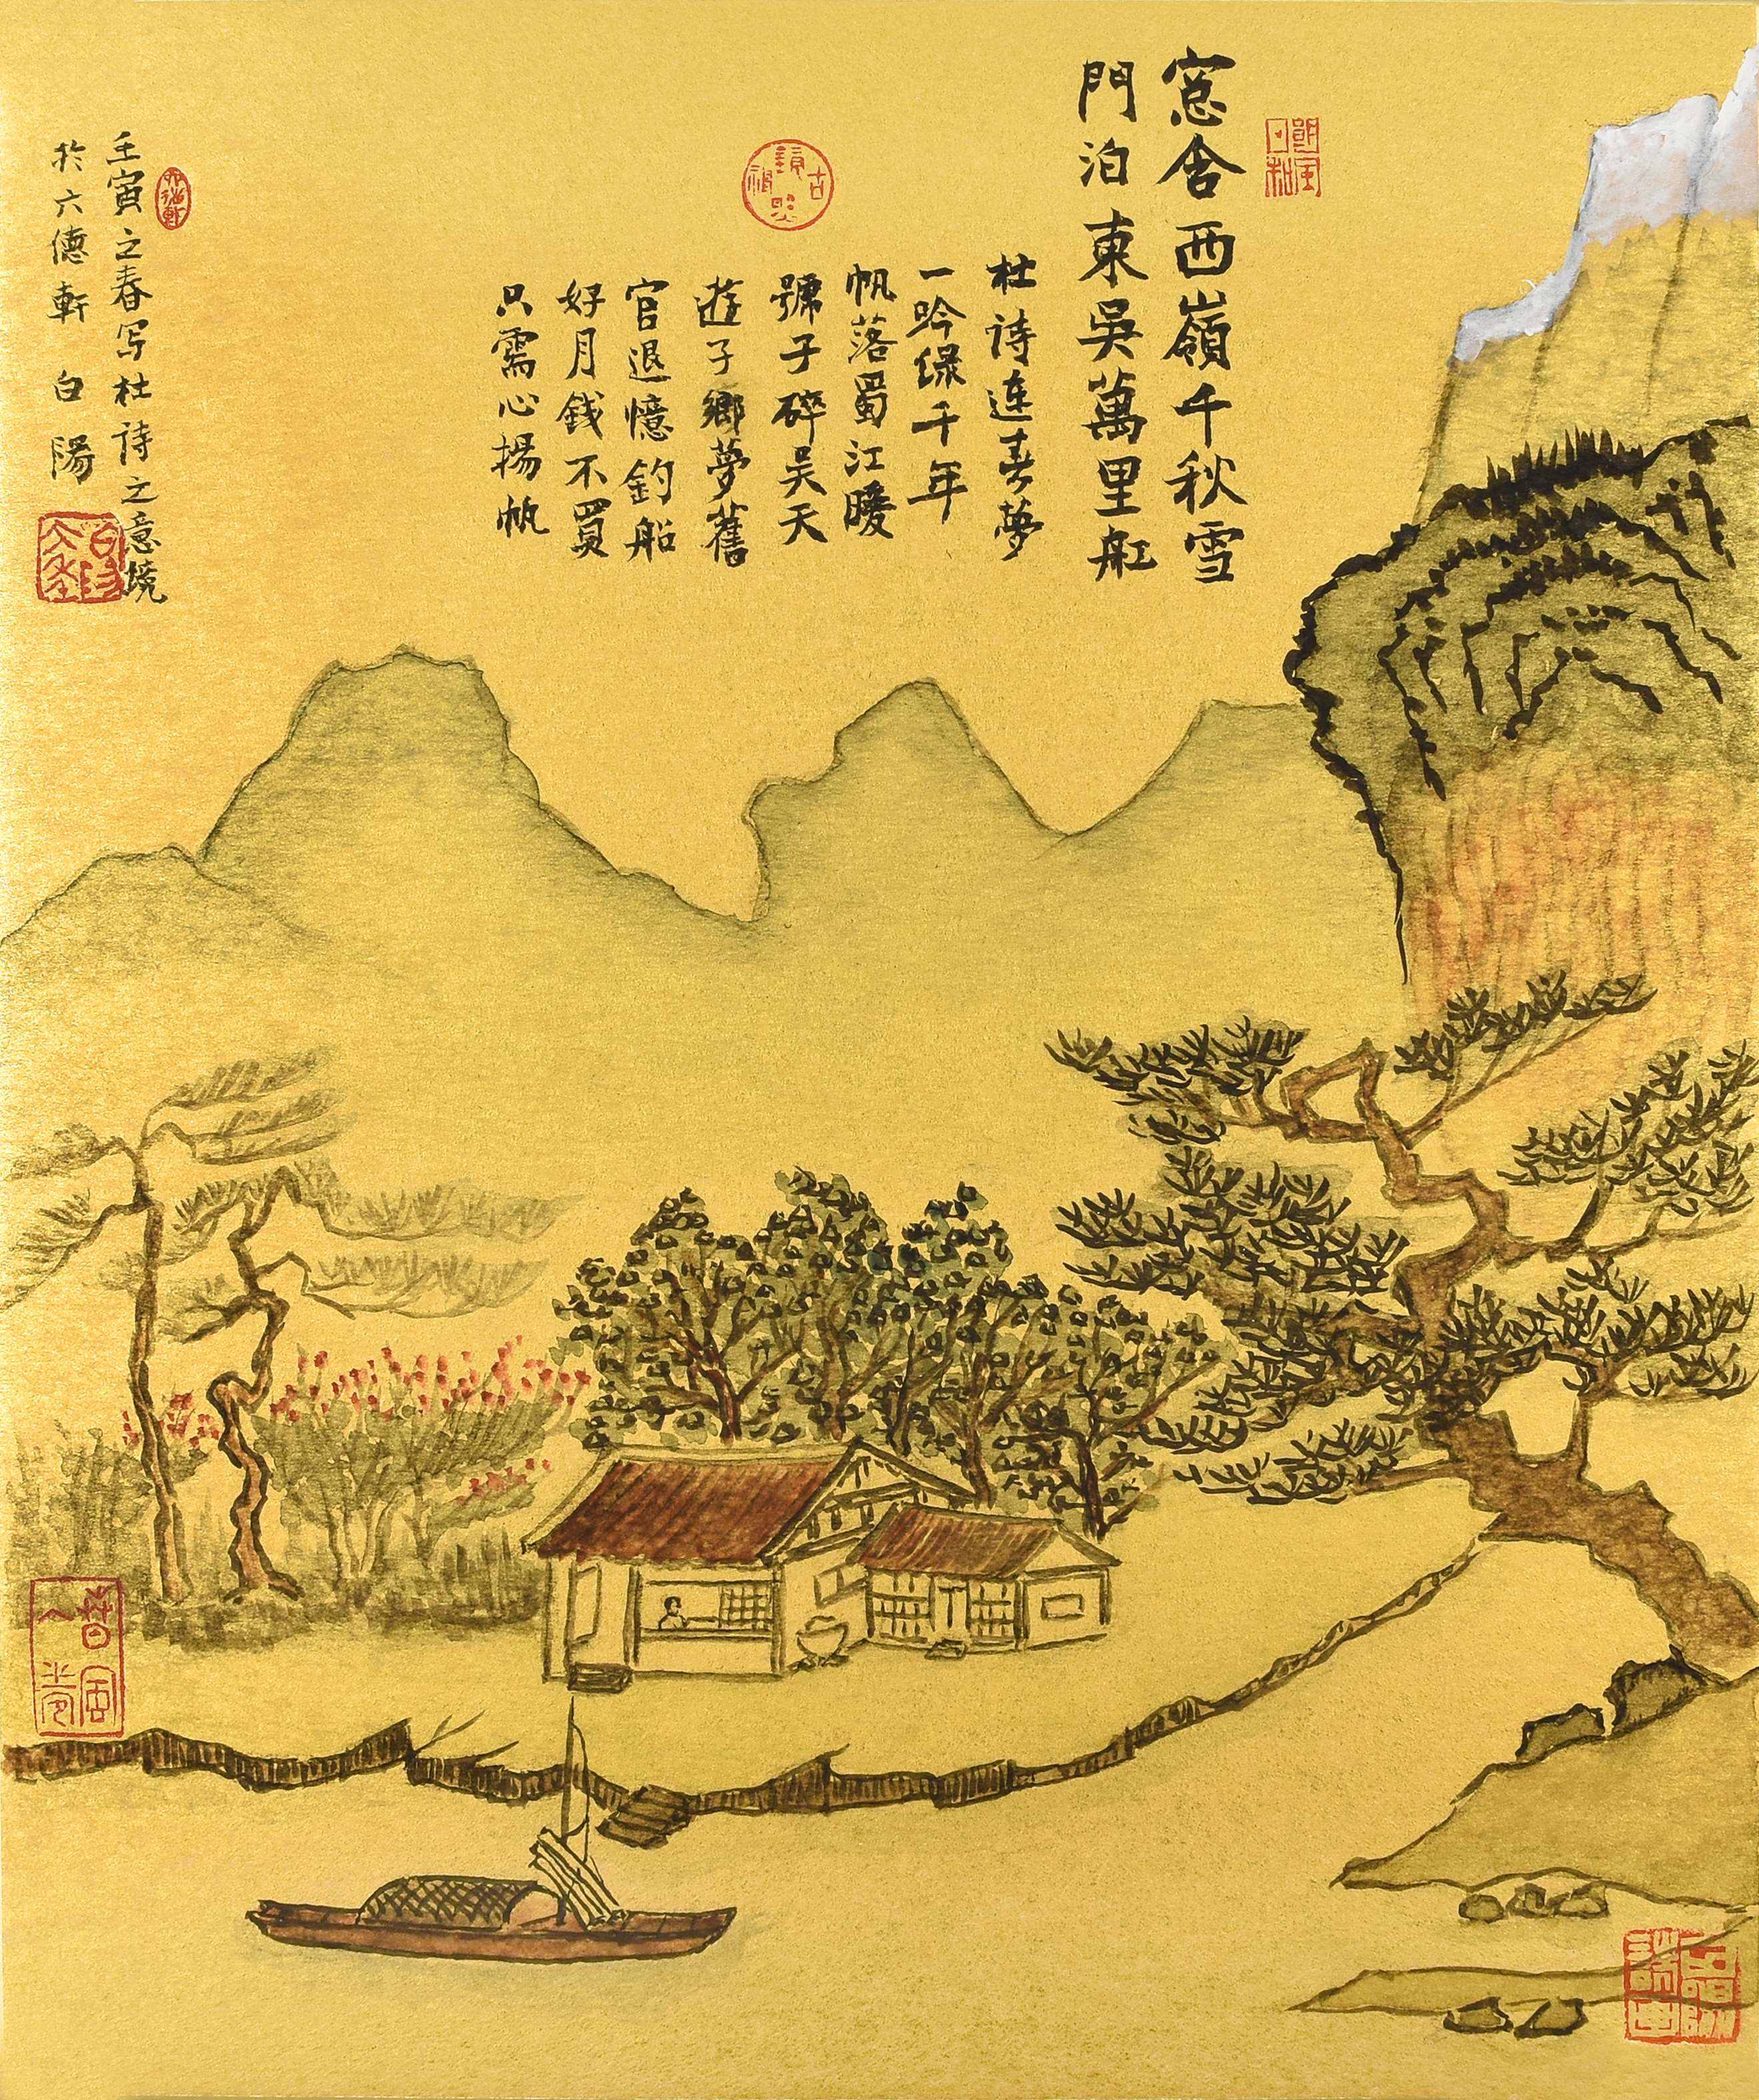 朗風日和
窓含西嶺千秋雪
門泊東吳萬里舡
杜诗连春夢
一吟绿千年
帆落蜀江暖
號子碎吴天
遊子鄉夢舊
官退憶釣船
好月銭不買
只需心揚帆
壬寅之春写杜诗之意境
於六德軒白陽